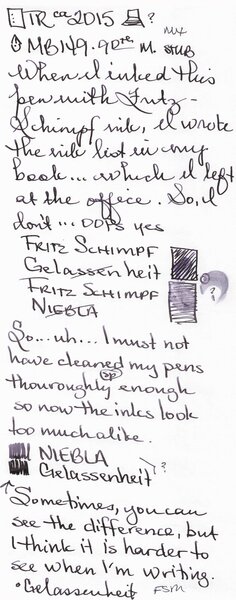 TR ca 2015 ?
MB149·90th M. STUB
When I inked this
pen with Fritz-
Schimpf ink, I wrote
the ink list in my
book... which I left
at the office. So, I
don't... OOPS yes
FRITZ SCHIMPF
Gelassenheit
FRITZ SCHIMPF
NIEBLA
?
So... uh... I must not
have cleaned my pens
thouroughly enough
so now the inks look
too much alike.
NIEBLA
Gelassenheit ?
Sometimes, you can
see the difference, but
I think it is harder to
see when I'm writing.
•Gelassenheit